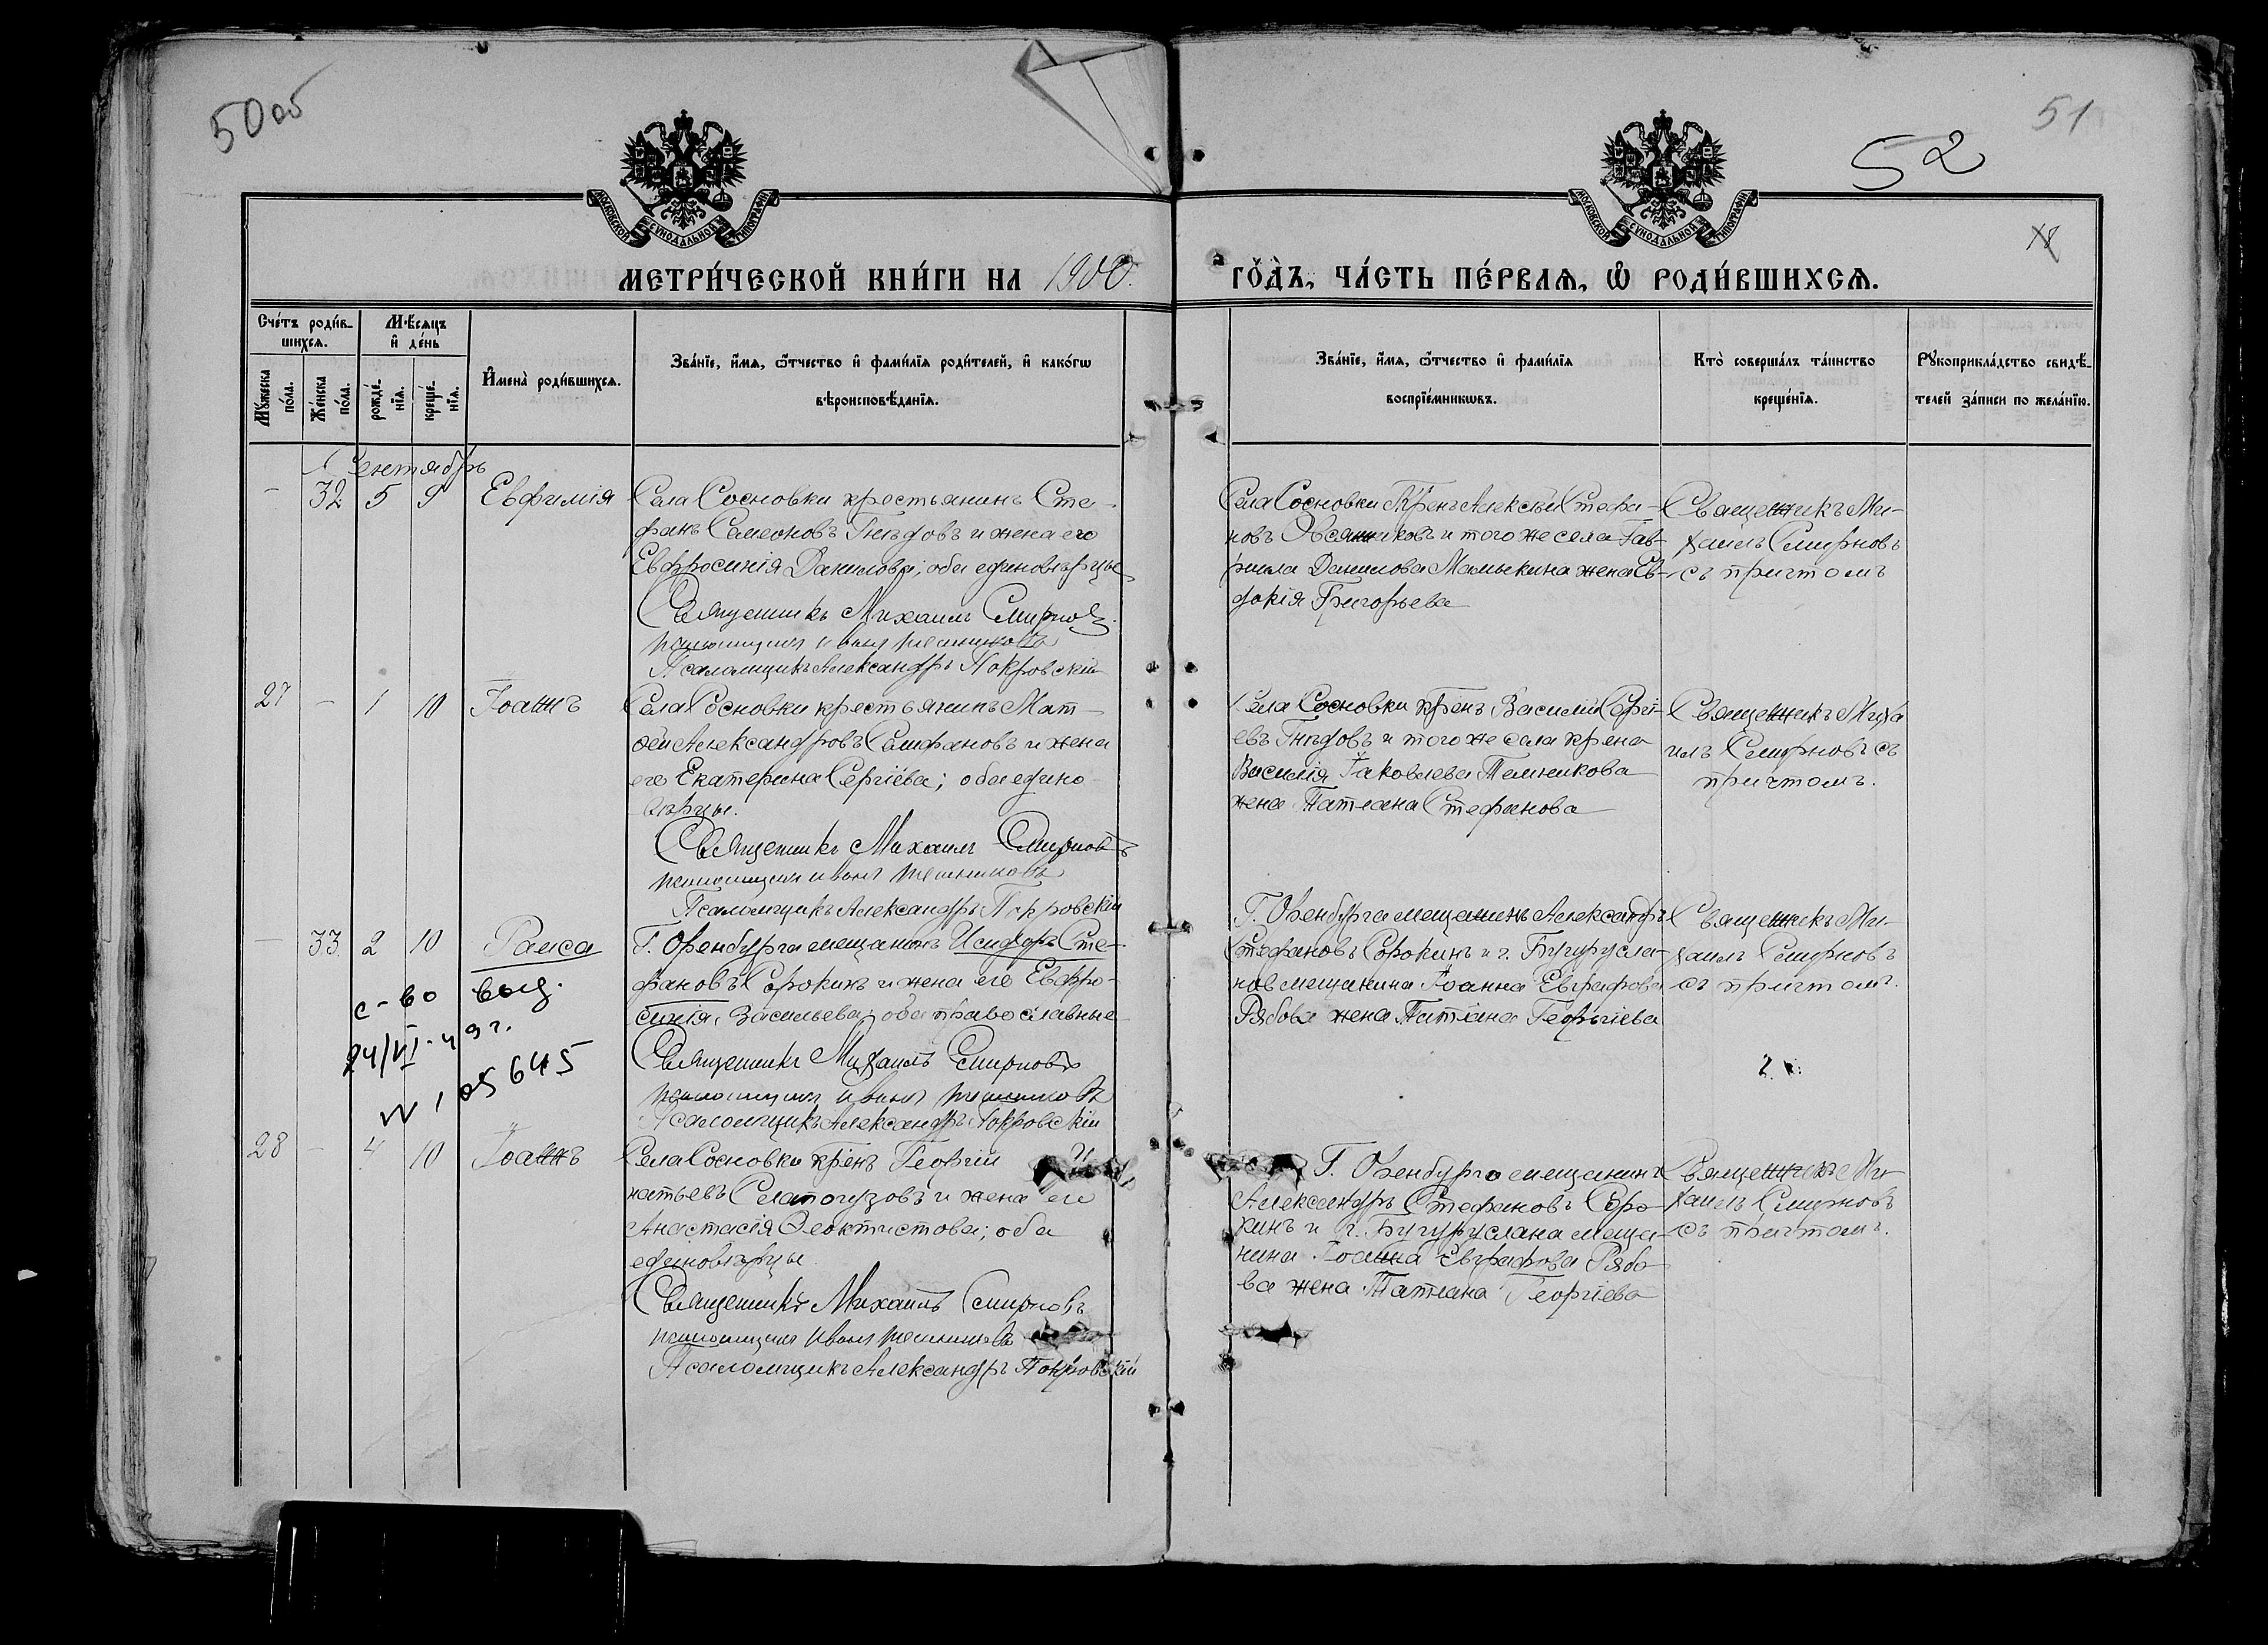 50 об
51
52
МОСКОВСКОЙ СѴНОДАЛЬНОЙ ТИПОГРАФІИ
МОСКОВСКОЙ СѴНОДАЛЬНОЙ ТИПОГРАФІИ
МЕТРИ́ЧЕСКОЙ КНИ́ГИ НА 1900.
ГО́ДЪ, ЧА́СТЬ ПЕ́РВАѦ, Ѡ҆ РОДИ́ВШИХСѦ.
Сче́тъ роди́в-
шихсѧ.
Мѣ́сѧцъ
и҆ де́нь
Мꙋ́жеска
по́ла.
Же́нска
по́ла.
рожде́-
нїѧ.
креще́-
нїѧ.
И҆мена̀ роди́вшихсѧ.
Зва́нїе, и҆́мѧ, ѻ҆́тчество и҆ фами́лїѧ роди́телей, и҆ како́гѡ
вѣроисповѣ́данїѧ.
Зва́нїе, и҆́мѧ, ѻ҆́тчество и҆ фами́лїѧ
воспрїе́мникѡвъ.
Кто̀ соверша́лъ та́инство
креще́нїѧ.
Рꙋкоприкла́дство свидѣ́-
телей за́писи по жела́нїю.
Сентябрь
- 32 5 9 Евфимія
Села Сосновки крестьянинъ Сте-
фанъ Симеоновъ Гнѣдовъ и жена его
Евфросинія Данилова; оба единовѣрцы
Священникъ Михаилъ Смирновъ
Псаломщикъ Александръ Покровскій
Села Сосновки Крен. Алексѣй Стефа-
новъ Овсянниковъ и того же села Гав-
ріила Данилова Мамыкина жена Ев-
докія Григорьева
Священникъ Ми-
хаилъ Смирновъ
съ причтомъ
27 - 1 10 Іоаннъ
Села Сосновки крестьянинъ Мат-
ѳей Александровъ Селифановъ и жена
его Екатерина Сергіева; оба едино-
вѣрцы.
Священникъ Михаилъ Смирновъ
Псаломщикъ Александръ Покровскій
Села Сосновки крен. Василій Сергі-
евъ Гнѣдовъ и того же села крена
Василія Іаковлева Темникова
жена Татіана Стефанова
Священникъ Миха
илъ Смирновъ съ
причтомъ.
- 33. 2 10 Раиса
Г. Оренбурга мещанинъ Исидоръ Сте-
фановъ Сорокинъ и жена его Евфро-
синія Васильева; оба православные
Священникъ Михаилъ Смирновъ
Псаломщикъ Александръ Покровскій
Г. Оренбурга мещанинъ Александръ
Стефановъ Сорокинъ и г. Бугурусла-
нов мещанина Іоанна Евграфова
Рябова жена Татіана Георгіева
Священникъ Ми-
хаилъ Смирновъ
съ причтомъ.
с-во выд.
24/VI-49 г.
28 - 4 10 Іоаннъ
Села Сосновки крен. Георгій И
натьевъ и жена его
Анастасія Ѳеоктистова; оба
единовѣрцы
Священникъ Михаилъ Смирновъ
Псаломщикъ Александръ Покровскій
Г. Оренбурга мещанинъ
Александръ Стефановъ Соро-
кинъ и г. Бугуруслана меща-
нина Іоанна Евграфова Рябо-
ва жена Татіана Георгіева
Священникъ Ми-
хаилъ Смирновъ
съ причтомъ.